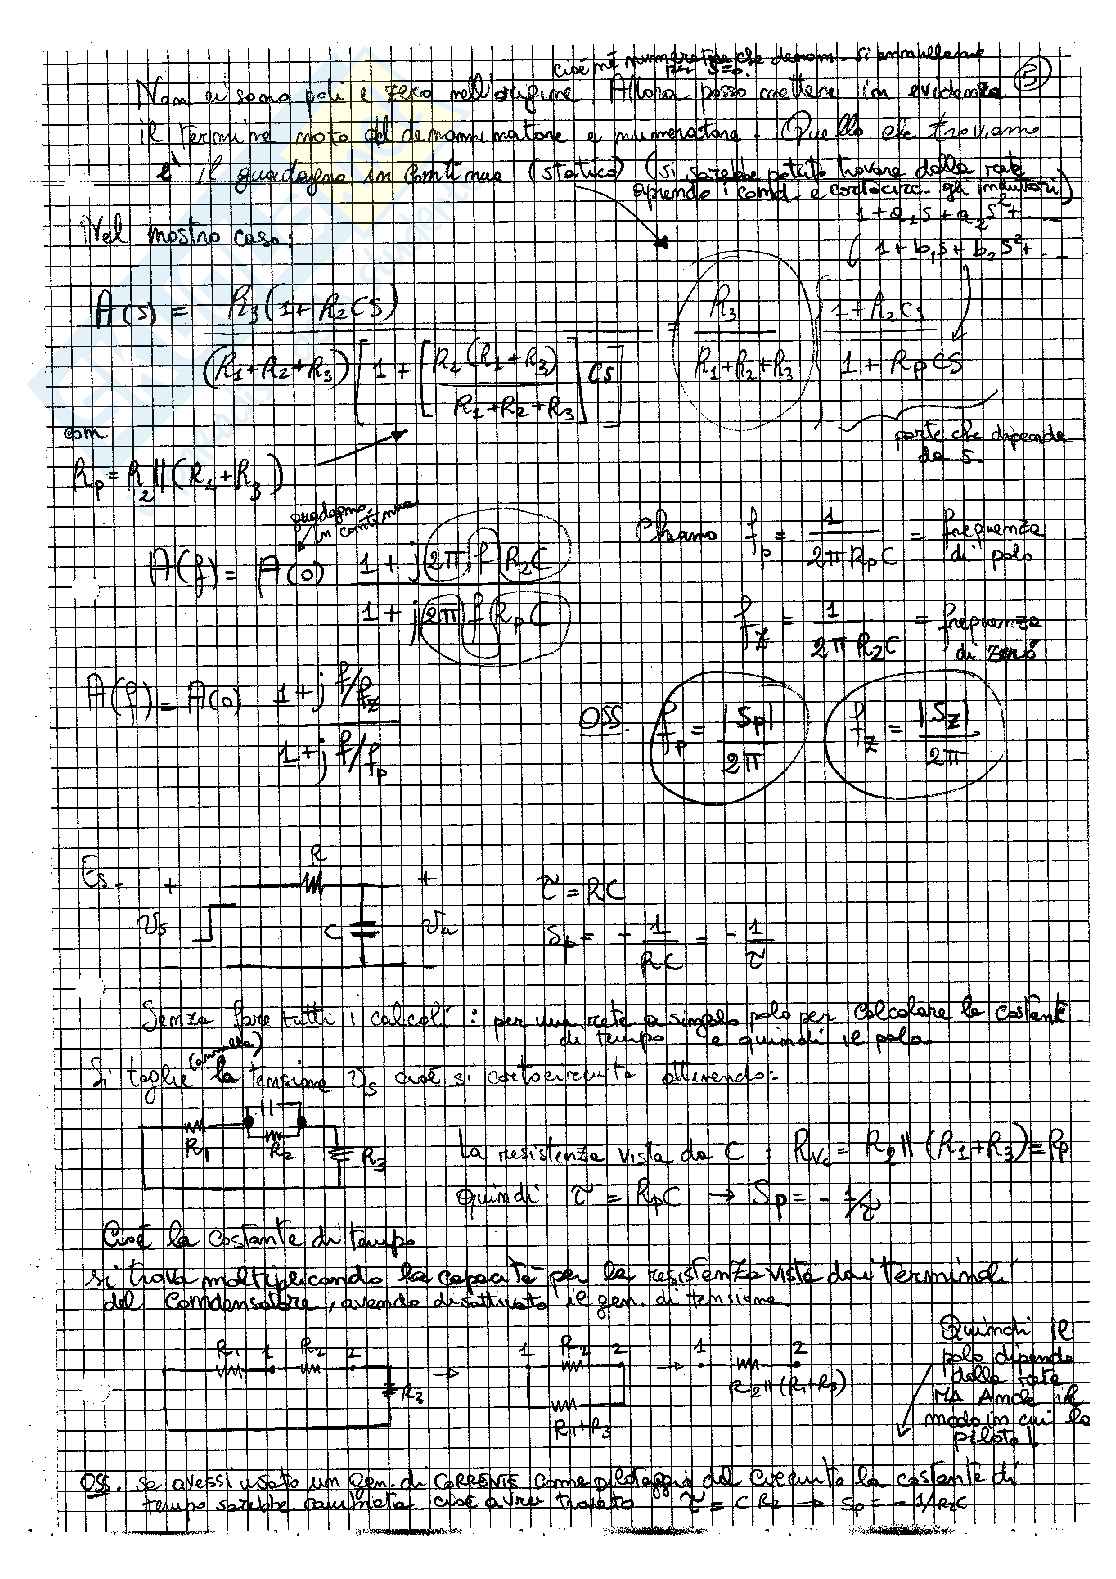 cioè né numeratore che denom. si annullano
per s=0.
5
Non ci sono poli e zero nell'origine Allora posso mettere in evidenza
il termine noto del denominatore e numeratore. Quello che troviamo
è il guadagno in continua (statico) (si sarebbe potuto trovare dalla rete
aprendo i cond. e cortocirc. gli induttori)
Nel nostro caso:
1+a₁s+a₂s²+...
1+b₁s+b₂s²+...
A(s) = R₃(1+R₂CS) / (R₁+R₂+R₃)[1+[R₂(R₁+R₃) / R₁+R₂+R₃]CS] = R₃ / R₁+R₂+R₃ (1+R₂CS / 1+RpCS
parte che dipende
da s.
con
Rp = R₂ || (R₁+R₃)
guadagno
in continua
A(f) = A(0) 1+j2πfR₂C / 1+j2πfRpC
Chiamo fp = 1 / 2πRpC = frequenza
di polo
fz = 1 / 2πR₂C = frequenza
di zero
A(f) = A(0) 1+j f/fz / 1+j f/fp
OSS. fp = |Sp| / 2π fz = |Sz| / 2π
Es. + R +
Vs C Vu
τ = RC
Sp = - 1/RC = - 1/τ
Senza fare tutti i calcoli: per una rete a singolo polo per calcolare la costante
di tempo e quindi il polo
(annulla)
Si toglie la tensione Vs cioè si cortocircuita ottenendo:
R₁ R₂ R₃
La resistenza vista da C: Rvc = R₂ || (R₁+R₃) = Rp
Quindi τ = RpC → Sp = - 1/τ
Cioè la costante di tempo
si trova moltiplicando la capacità per la resistenza vista dai terminali
del condensatore, avendo disattivato il gen. di tensione.
R₁ 1 R₂ 2 R₃ → 1 R₂ 2 R₁+R₃ → 1 2 R₂ || (R₁+R₃)
Quindi il
polo dipende
dalla rete
MA Anche il
modo in cui la
piloto!
OSS. se avessi usato un gen. di CORRENTE come pilotaggio del circuito la costante di
tempo sarebbe cambiata cioè avrei trovato τ = CR₂ → Sp = - 1/R₂C